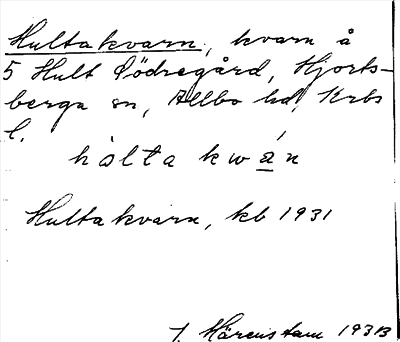 Hultakvarn, kvarn å
5 Hult Södregård, Hjorts-
berga sn, Allbo hd, Krbs
l.
hòlta kwán
Hultakvarn, kb 1931
J. Härenstam 1933